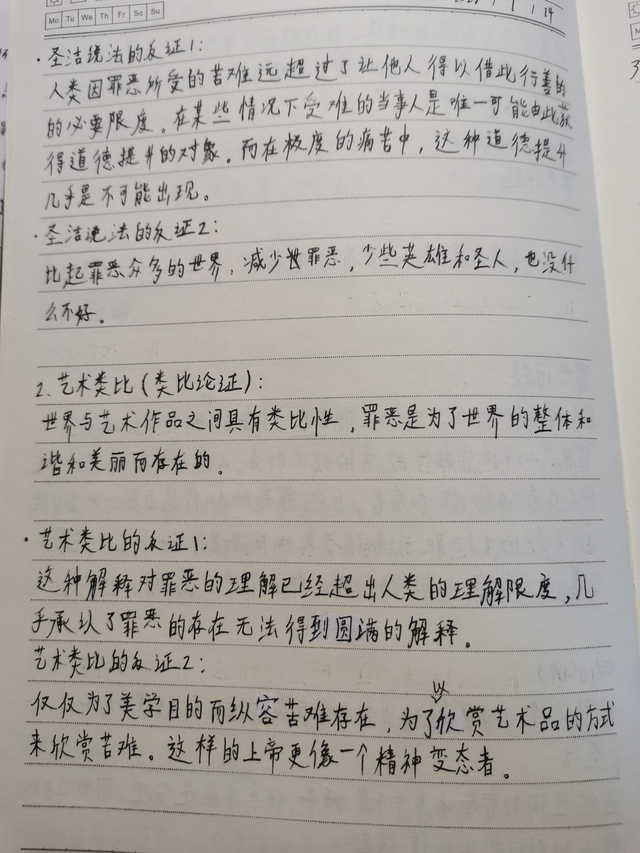 Mo Tu We Th Fr Sa Su
·圣洁说法的反证1:
人类因罪恶所受的苦难远超过了让他人得以借此行善的
的必要限度。在某些情况下受难的当事人是唯一可能由此获
得道德提升的对象。而在极度的病苦中,这种道德提升
几乎是不可能出现。
·圣洁说法的反证2:
比起罪恶众多的世界,减少些罪恶,少些英雄和圣人,也没什
么不好。
2.艺术类比(类比论证):
世界与艺术作品之间具有类比性,罪恶是为了世界的整体和
谐和美丽而存在的。
·艺术类比的反证1:
这种解释对罪恶的理解已经超出人类的理解限度,几
乎承认了罪恶的存在无法得到圆满的解释。
艺术类比的反证2:
以
仅仅为了美学目的而纵容苦难存在,为了欣赏艺术品的方式
来欣赏苦难。这样的上帝更像一个精神变态者。